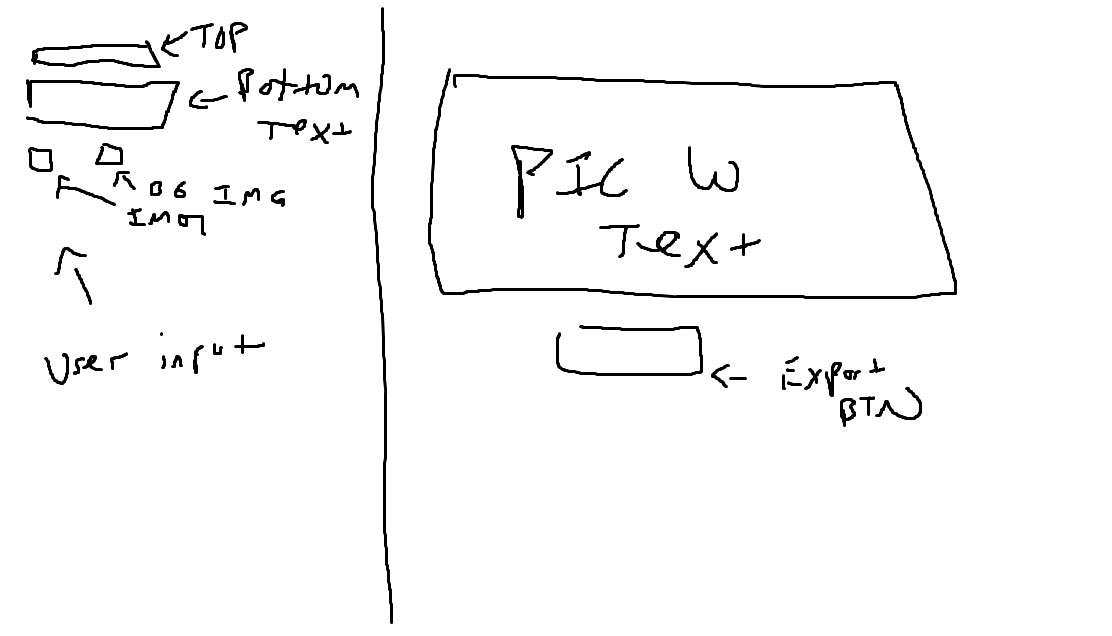 TOP
Bottom
Text
BG IMG
IMG
User input
PIC W
Text
Export
BTN